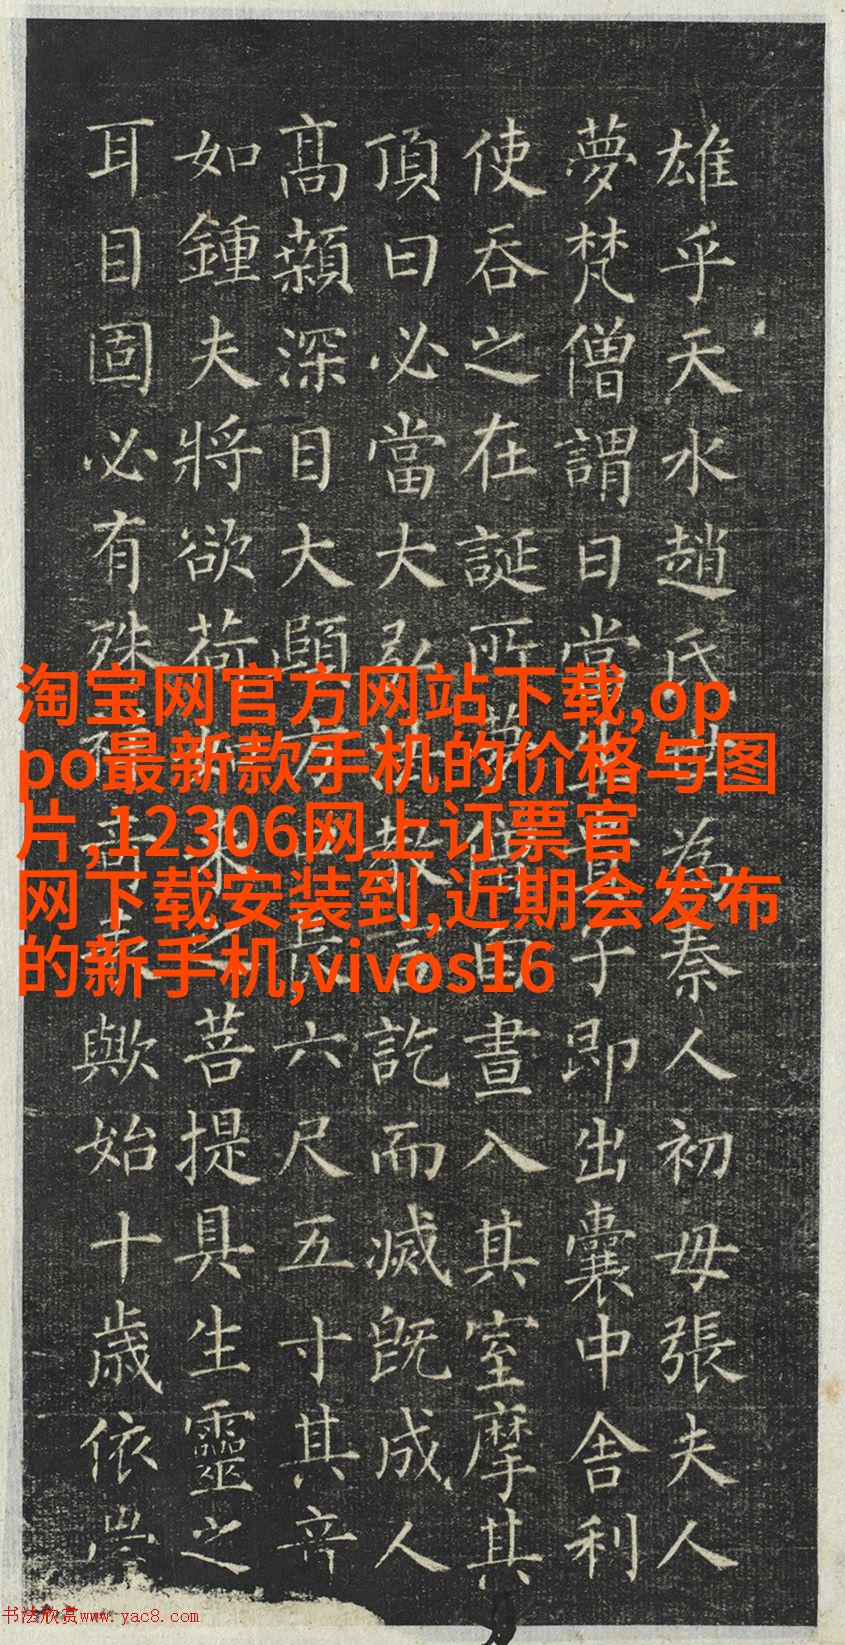 雄乎天水趙氏世為秦人初母張夫人
夢梵僧謂曰當生貴子即出囊中舍利
使吞之在誕所夢僧白晝入其室摩其
頂曰必當大弘法教言訖而滅既成人
高顙深目大頤方口長六尺五寸其音
如鍾夫將欲荷如來之菩提具生靈之
耳目固必有殊祥奇表歟始十歲依
淘宝网官方网站下载,op
po最新款手机的价格与图
片,12306网上订票官
网下载安装到,近期会发布
的新手机,vivos16
书法欣赏www.yac8.com